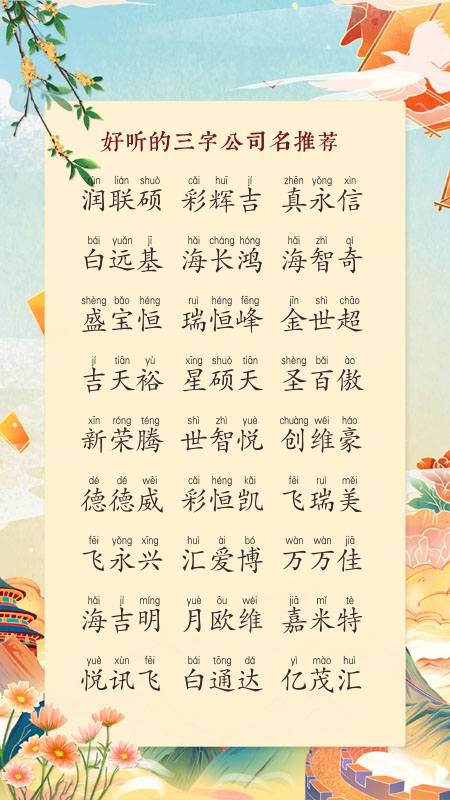 好听的三字公司名推荐
rùn lián shuò cǎi huī jí zhēn yǒng xìn
润联硕 彩辉吉 真永信
bái yuǎn jī hǎi cháng hóng hǎi zhì qí
白远基 海长鸿 海智奇
shèng bǎo héng ruì héng fēng jīn shì chāo
盛宝恒 瑞恒峰 金世超
jí tiān yù xīng shuò tiān shèng bǎi ào
吉天裕 星硕天 圣百傲
xīn róng téng shì zhì yuè chuàng wéi háo
新荣腾 世智悦 创维豪
dé dé wēi cǎi héng kǎi fēi ruì měi
德德威 彩恒凯 飞瑞美
fēi yǒng xīng huì ài bó wàn wàn jiā
飞永兴 汇爱博 万万佳
hǎi jí míng yuè ōu wéi jiā mǐ tè
海吉明 月欧维 嘉米特
yuè xùn fēi bái tōng dá yì mào huì
悦讯飞 白通达 亿茂汇